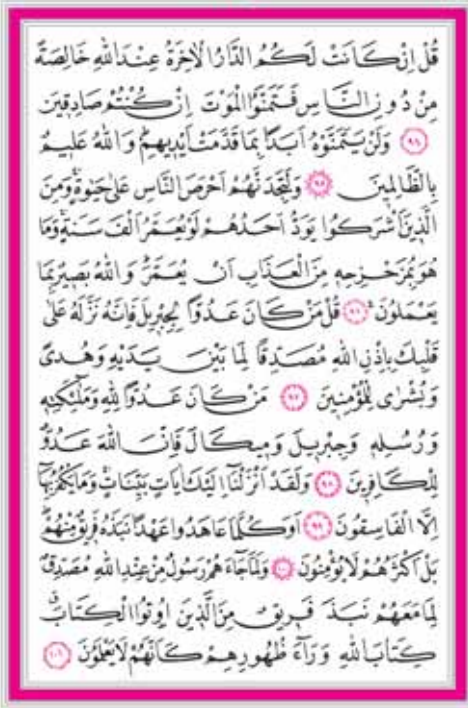 قُلْ اِنْ كَانَتْ لَكُمُ الدَّارُ الْاٰخِرَةُ عِنْدَ اللّٰهِ خَالِصَةً
مِنْ دُونِ النَّاسِ فَتَمَنَّوُا الْمَوْتَ اِنْ كُنْتُمْ صَادِق۪ينَ
﴿٩٤﴾ وَلَنْ يَتَمَنَّوْهُ اَبَداً بِمَا قَدَّمَتْ اَيْد۪يهِمْۜ وَاللّٰهُ عَل۪يمٌ
بِالظَّالِم۪ينَ ﴿٩٥﴾ وَلَتَجِدَنَّهُمْ اَحْرَصَ النَّاسِ عَلٰى حَيٰوةٍۚ وَمِنَ
الَّذ۪ينَ اَشْرَكُوا يَوَدُّ اَحَدُهُمْ لَوْ يُعَمَّرُ اَلْفَ سَنَةٍۚ وَمَا
هُوَ بِمُزَحْزِحِه۪ مِنَ الْعَذَابِ اَنْ يُعَمَّرَۜ وَاللّٰهُ بَص۪يرٌ بِمَا
يَعْمَلُونَ۟ ﴿٩٦﴾ قُلْ مَنْ كَانَ عَدُواًّ لِجِبْر۪يلَ فَاِنَّهُ نَزَّلَهُ عَلٰى
قَلْبِكَ بِاِذْنِ اللّٰهِ مُصَدِّقاً لِمَا بَيْنَ يَدَيْهِ وَهُدًى
وَبُشْرٰى لِلْمُؤْمِن۪ينَ ﴿٩٧﴾ مَنْ كَانَ عَدُواًّ لِلّٰهِ وَمَلٰٓئِكَتِه۪
وَرُسُلِه۪ وَجِبْر۪يلَ وَم۪يكَالَ فَاِنَّ اللّٰهَ عَدُوٌّ
لِلْكَافِر۪ينَ ﴿٩٨﴾ وَلَقَدْ اَنْزَلْنَٓا اِلَيْكَ اٰيَاتٍ بَيِّنَاتٍۚ وَمَا يَكْفُرُ بِهَٓا
اِلَّا الْفَاسِقُونَ ﴿٩٩﴾ اَوَكُلَّمَا عَاهَدُوا عَهْداً نَبَذَهُ فَر۪يقٌ مِنْهُمْۜ
بَلْ اَكْثَرُهُمْ لَا يُؤْمِنُونَ ﴿١٠٠﴾ وَلَمَّا جَٓاءَهُمْ رَسُولٌ مِنْ عِنْدِ اللّٰهِ مُصَدِّقٌ
لِمَا مَعَهُمْ نَبَذَ فَر۪يقٌ مِنَ الَّذ۪ينَ اُو۫تُوا الْكِتَابَۗ
كِتَابَ اللّٰهِ وَرَٓاءَ ظُهُورِهِمْ كَاَنَّهُمْ لَا يَعْلَمُونَۘ ﴿١٠١﴾